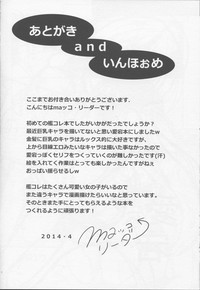 あとがき
and
いんほぉめ
ここまでお付き合いありがとうございます。
こんにちはmaッコ・リーダーです!
初めての艦コレ本でしたがいかがだったでしょうか?
最近巨乳キャラを描いてないと思い愛宕本にしましたw
金髪に巨乳キャラはルックス的に大好きですが、
上から目線エロみたいなキャラは描いた事なかったので
愛宕っぽくセリフをつくっていくのが難しかったです(汗)
絵を入れてく作業はとっても楽しかったんですがねぇ
おっぱい揺らせるしw
艦コレはたくさん可愛い女の子がいるので
また違うキャラで漫画描けたらいいなと思っています。
そのときまた手にとってもらえるような本を
つくれるように頑張ります!
2014・4
maッコ
リーダー